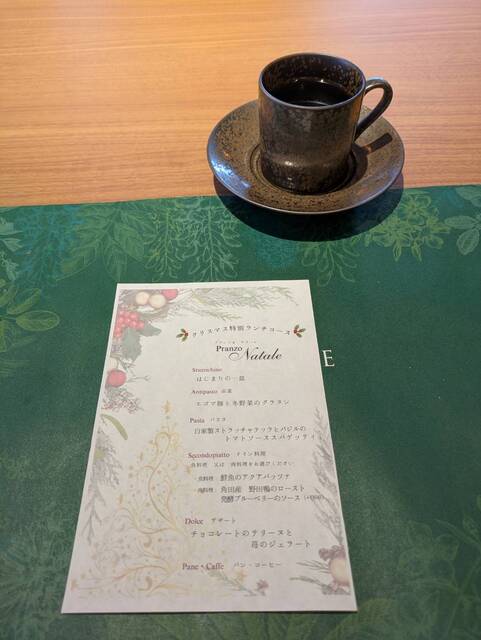 クリスマス特別ランチコース
プランツォ・ナターレ
Pranzo
Natale
E
Stuzzichino
はじまりの一皿
Antipasto 前菜
エゴマ豚と冬野菜のグラタン
Pasta パスタ
自家製ストラッチャテッラとバジルの
トマトソーススパゲッティ
Secondopiatto メイン料理
魚料理 又は 肉料理をお選びください
魚料理 鮮魚のアクアパッツァ
肉料理 角田産 野田鴨のロースト
発酵ブルーベリーのソース
Dolce デザート
チョコレートのテリーヌと
苺のジェラート
Pane・Caffe パン・コーヒー